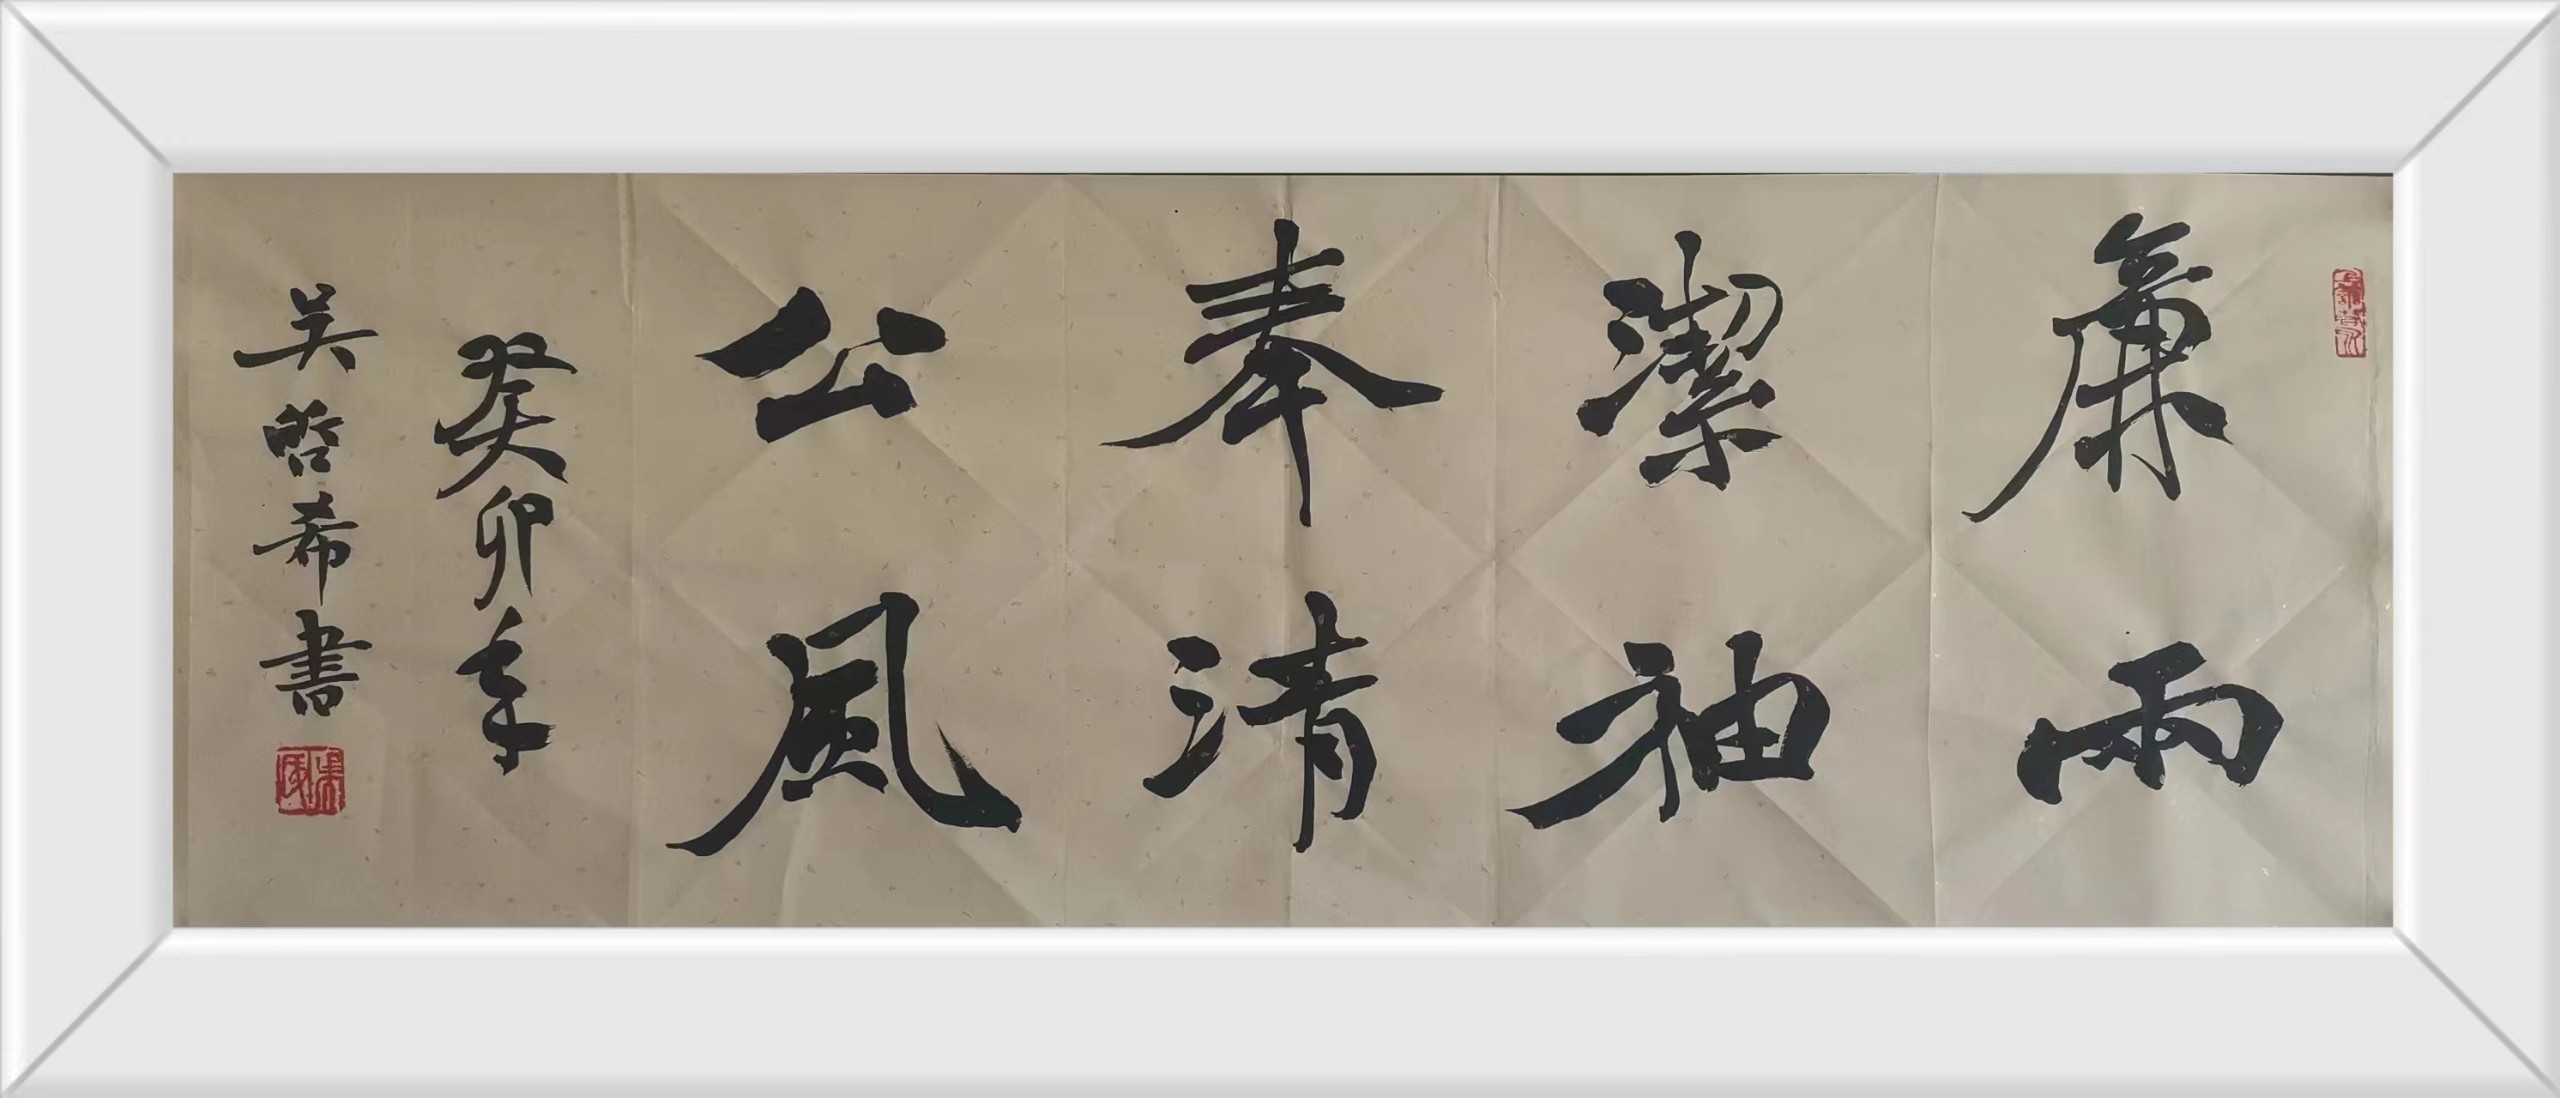 廉兩
潔袖
奉清
公風
癸卯年
吳哲希書